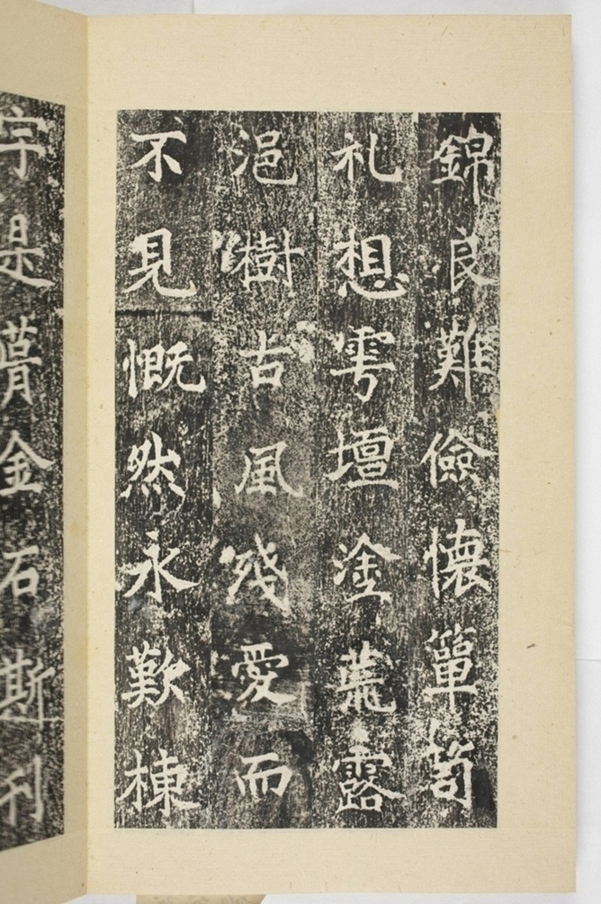 錦良難儉懷簞笥
礼想雩壇塗荒露
浥樹古風殘愛而
不見慨然永歎棟
宇是葺金石斯刊